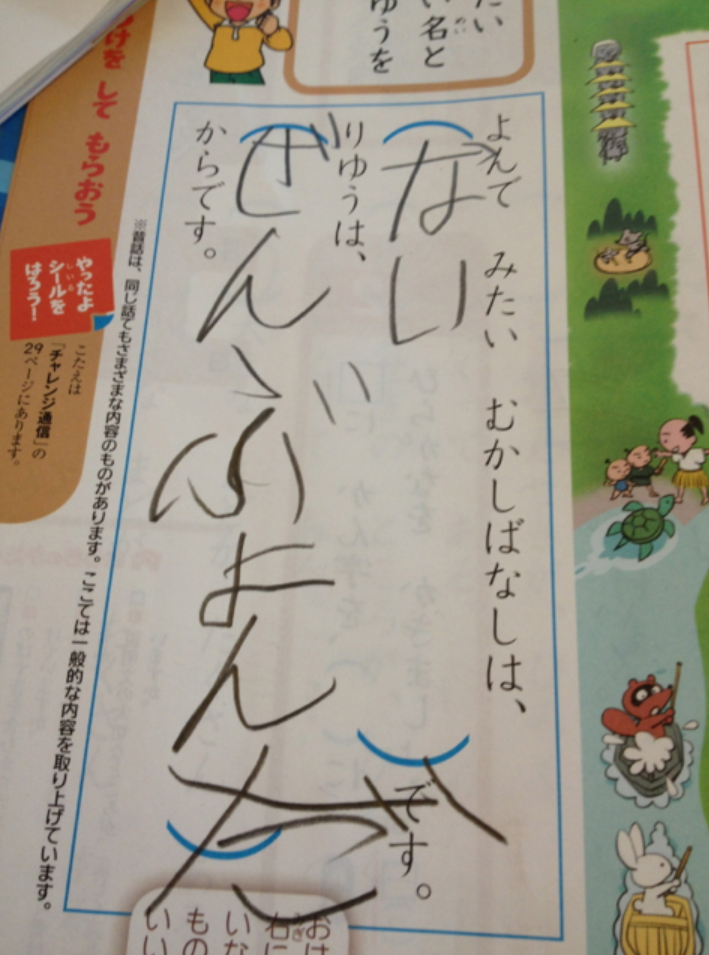 たい
い名と
ゆうを
よんで みたい むかしばなしは、
ない
です。
りゆうは、
ぜんぶよんだ
からです。
※昔話は、同じ話でもさまざまな内容のものがあります。ここでは一般的な内容を取り上げています。
けを して もらおう
やったよ
シールを
はろう!
こたえは
「チャレンジ通信」の
29ページにあります。
おは
右に
いな
もの
いい